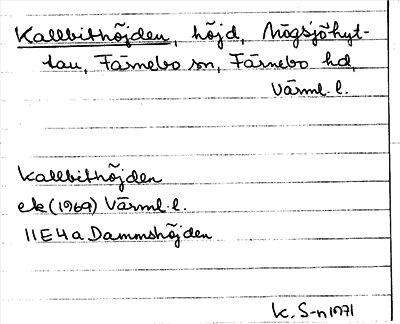 Kallbithöjden, höjd, Högsjöhyt-
tan, Färnebo sn, Färnebo hd,
Värml. l.
Kallbithöjden
ek (1969) Värml. l.
11E4a Dammshöjden
K. S-n 1971